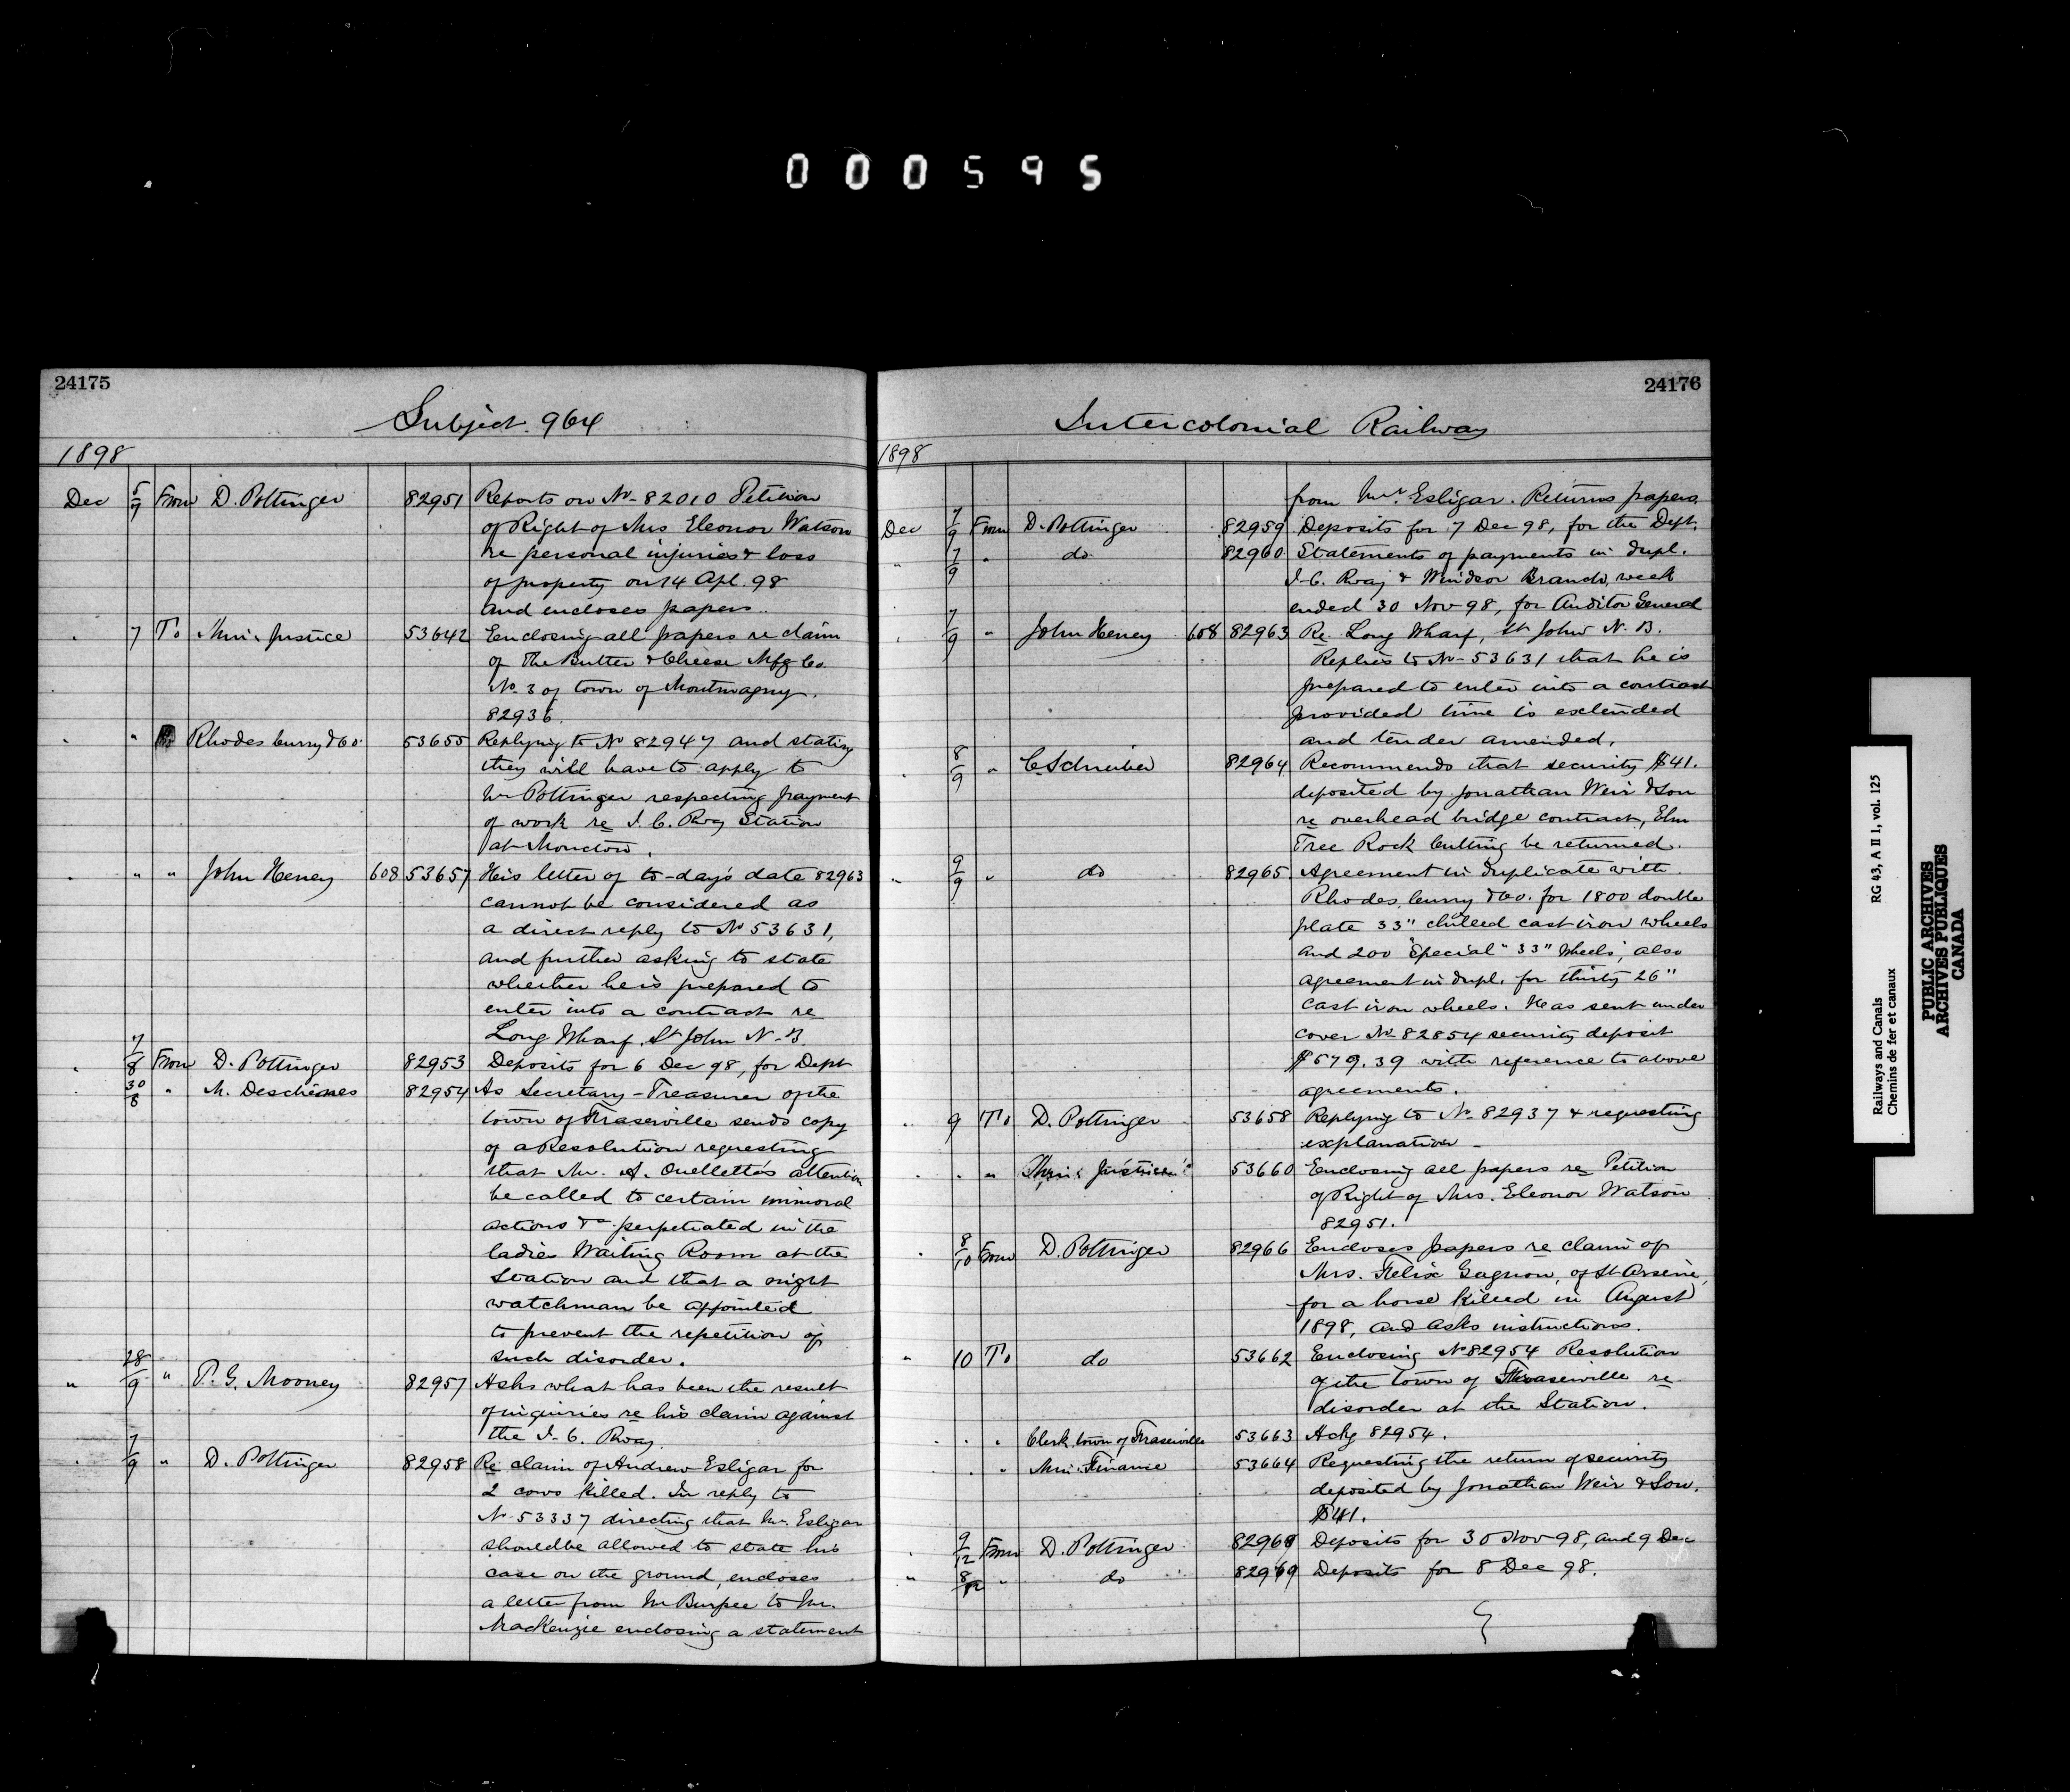 000595
24175
Subject. 964
1898
Dec 5/7 From D. Pottinger 82951 Reports on No- 82010 Petition
of Right of Mrs Eleonor Watson
re personal injuries & loss
of property on 14 Apl. 98
and encloses papers.
" 7 To Min. Justice 53642 Enclosing all papers re claim
of The Butter & Cheese Mfg Co.
No. 3 of town of Montmagny.
82936.
" " Rhodes Curry & Co. 53655 Replying to No 82947 and stating
they will have to apply to
Mr Pottinger respecting payment
of work re I. C. Rway Station
at Moncton.
" " " John Heney 608 53657 His letter of to-day's date 82963
cannot be considered as
a direct reply to No 53631,
and further asking to state
whether he is prepared to
enter into a contract re
Long Wharf, St John N-B.
" 7/8 From D. Pottinger 82953 Deposits for 6 Dec 98, for Dept
" 30/8 " M. Deschênes 82954 As Secretary-Treasurer of the
town of Fraserville sends copy
of a Resolution requesting
that Mr. A. Ouellette's attention
be called to certain immoral
actions &c perpetrated in the
ladies Waiting Room at the
Station and that a night
watchman be appointed
to prevent the repetition of
such disorder.
" 28/9 " P. G. Mooney 82957 Asks what has been the result
of inquiries re his claim against
the I. C. Rway.
" 7/9 " D. Pottinger 82958 Re claim of Andrew Esligar for
2 cows killed. In reply to
No 53337 directing that Mr. Esligar
should be allowed to state his
case on the ground, encloses
a letter from Mr Burpee to Mr.
MacKenzie enclosing a statement
24176
Intercolonial Railway
1898
from Mr. Esligar. Returns papers
Dec 7/9 From D. Pottinger 82959 Deposits for 7 Dec 98, for the Dept.
" 7/9 " do 82960 Statements of payments in dupl.
I-C. Rway & Windsor Branch, week
ended 30 Nov 98, for Auditor General
" 7/9 " John Heney 608 82963 Re Long Wharf, St John N. B.
Replies to No- 53631 that he is
prepared to enter into a contract
provided time is extended
and tender amended.
" 8/9 " C. Schreiber 82964 Recommends that security $41.
deposited by Jonathan Weir & Son
re overhead bridge contract, Elm
Tree Rock Cutting be returned.
" 9/9 " do 82965 Agreement in duplicate with
Rhodes, Curry & Co. for 1800 double
plate 33" chilled cast iron wheels
and 200 "Special" 33" Wheels, also
agreement in dupl. for thirty 26"
cast iron wheels. Has sent under
cover No 82854 security deposit
$579.39 with reference to above
agreements.
" 9 To D. Pottinger 53658 Replying to No 82937 & requesting
explanation -
" " " Min: Justice 53660 Enclosing all papers re Petition
of Right of Mrs. Eleonor Watson
82951.
" 8/10 From D. Pottinger 82966 Encloses papers re claim of
Mrs. Felix Gagnon, of St Arsène,
for a horse killed in August
1898, and asks instructions.
" 10 To do 53662 Enclosing No 82954 Resolution
of the town of Fraserville re
disorder at the Station.
" " " Clerk, town of Fraserville 53663 Ackg 82954.
" " " Min: Finance 53664 Requesting the return of security
deposited by Jonathan Weir & Son.
$41.
" 9/12 From D. Pottinger Deposits for 30 Nov 98, and 9 Dec
" 8/12 " do 82969 Deposits for 8 Dec 98.
Railways and Canals RG 43, A II 1, vol. 125
Chemins de fer et canaux
PUBLIC ARCHIVES
ARCHIVES PUBLIQUES
CANADA